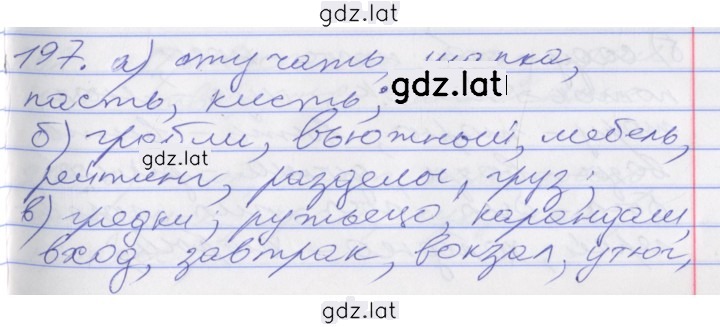 gdz.lat
197. а) стучать, шапка,
пасть, кисть;
gdz.lat
б) грабли, вьюжный, мебель,
gdz.lat
рейтинг, разделы, груз;
в) грядки; ружьецо, карандаш,
вход, завтрак, вокзал, утюг,
gdz.lat